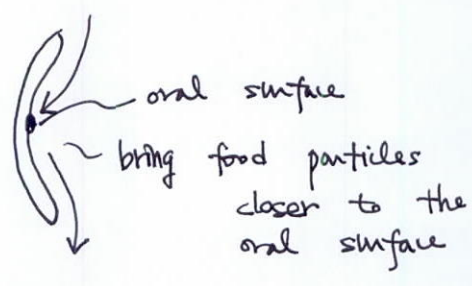 oral surface
bring food particles
closer to the
oral surface